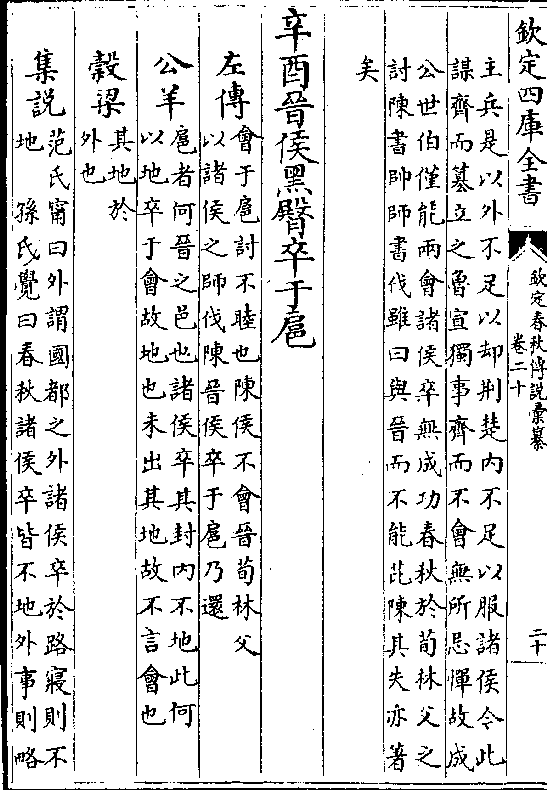 欽定四庫全書
欽定春秋傳說彙纂
卷二十
二十
主兵是以外不足以却荆楚内不足以服諸侯令此
謀齊而墓立之魯宣獨事齊而不會無所忌憚故成
公世伯僅能兩會諸侯卒無成功春秋於荀林父之
討陳書帥師書伐雖曰與晉而不能庇陳其失亦著
矣
辛酉晉侯黑臀卒于扈
左傳
會于扈討不睦也陳侯不會晉荀林父
以諸侯之師伐陳晉侯卒于扈乃還
公羊
扈者何晉之邑也諸侯卒其封内不地此何
以地卒于會故地也未出其地故不言會也
穀梁
其地於
外也
集說
范氏甯曰外謂國都之外諸侯卒於路寢則不
地　孫氏覺曰春秋諸侯卒皆不地外事則略